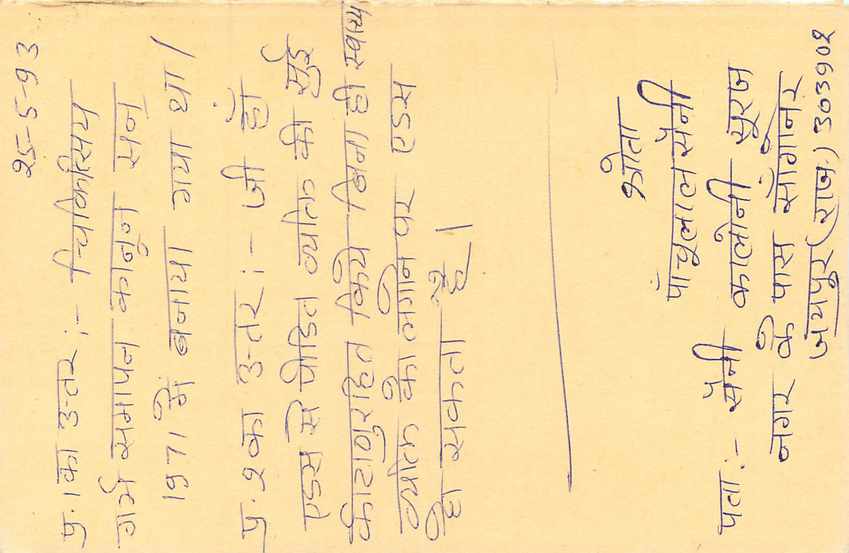 25-5-93
प्र.1 का उत्तर :- चिकित्सिय
गर्भ समापन कानून सन
1971 में बनाया गया था।
प्र.2 का उत्तर :- जी हाँ
एड्स से पीडित व्यक्ति की सुई
कीटाणुरहित किये बिना ही स्वास्थ
व्यक्ति को लगाने पर एडस
हो सकता है।
श्रोता
पाँचूलाल सैनी
पता :- सैनी कालोनी सुरज
नगर के पास साँगानेर
जयपुर (राज.) 303902